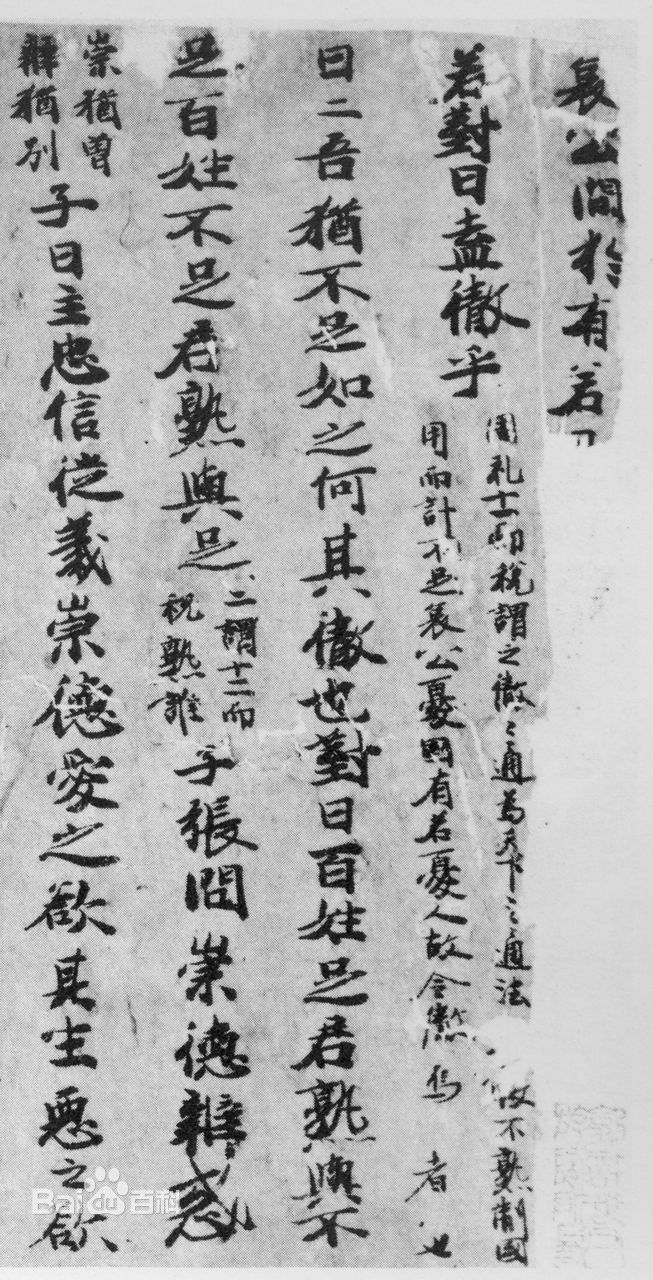 哀公問於有若曰
若對曰盍徹乎
周礼士一而稅謂之徹〻通為天下之通法
故不熟制國
用而計不足哀公憂國有若憂人故令徹焉
者也
曰二吾猶不足如之何其徹也對曰百姓足君熟與不
足百姓不足君熟與足
二謂十二而
稅熟誰
子張問崇德辯惑
崇猶曾
辯猶別
子曰主忠信従義崇德愛之欲其生惡之欲
Bai百科